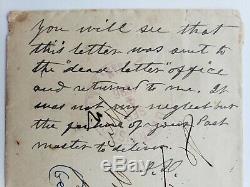 You will see that
this letter was sent to
the "dead letter" office
and returned to me. It
was not my neglect but
the failure of your Post
master to deliver.